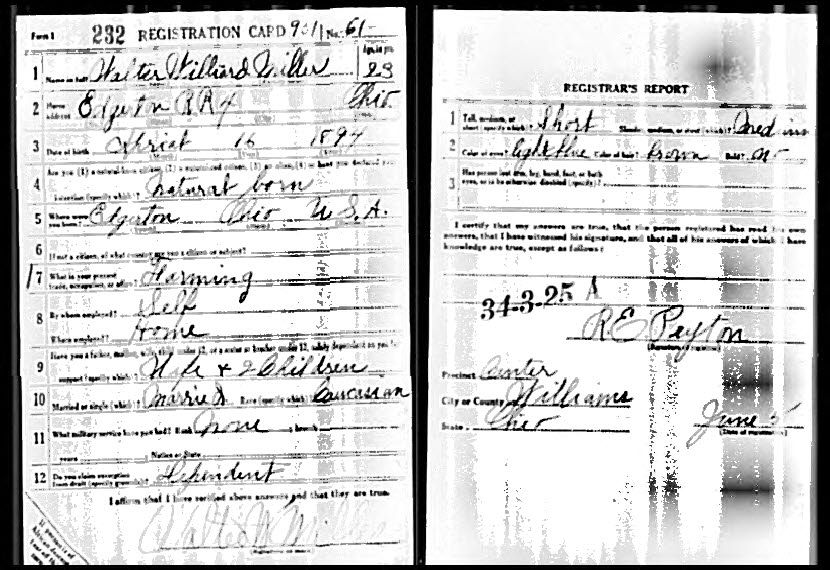 Form 1 232 REGISTRATION CARD No. 61
Age, in yrs.
1 Name in full Walter Williard Miller 23
2 Home address Edgerton RR 4 Ohio
3 Date of birth 16 1894
4 Are you (1) a natural-born citizen, (2) a naturalized citizen, (3) an alien, (4) or have you declared your
intention (specify which)? natural born
5 Where were you born? Edgerton Ohio U.S.A.
6 If not a citizen, of what country are you a citizen or subject?
7 What is your present trade, occupation, or office? Farming
8 By whom employed? Self
Where employed? Home
9 Have you a father, mother, wife, child under 12, or a sister or brother under 12, solely dependent on you for
support (specify which)? Wife + 2 Children
10 Married or single (which)? Married Race (specify which)? Caucasian
11 What military service have you had? Rank None ; branch
years Nation or State
12 Do you claim exemption from draft (specify grounds)? Dependent
I affirm that I have verified above answers and that they are true.
Walter W Miller
REGISTRAR'S REPORT
1 Tall, medium, or short (specify which)? Short Slender, medium, or stout (which)? Medium
2 Color of eyes? light blue Color of hair? brown Bald? no
3 Has person lost arm, leg, hand, foot, or both
eyes, or is he otherwise disabled (specify)?
I certify that my answers are true, that the person registered has read his own
answers, that I have witnessed his signature, and that all of his answers of which I have
knowledge are true, except as follows:
34-3-25 A
R E Peyton
(Signature of registrar)
Precinct Center
City or County Williams
State Ohio June 5
(Date of registration)